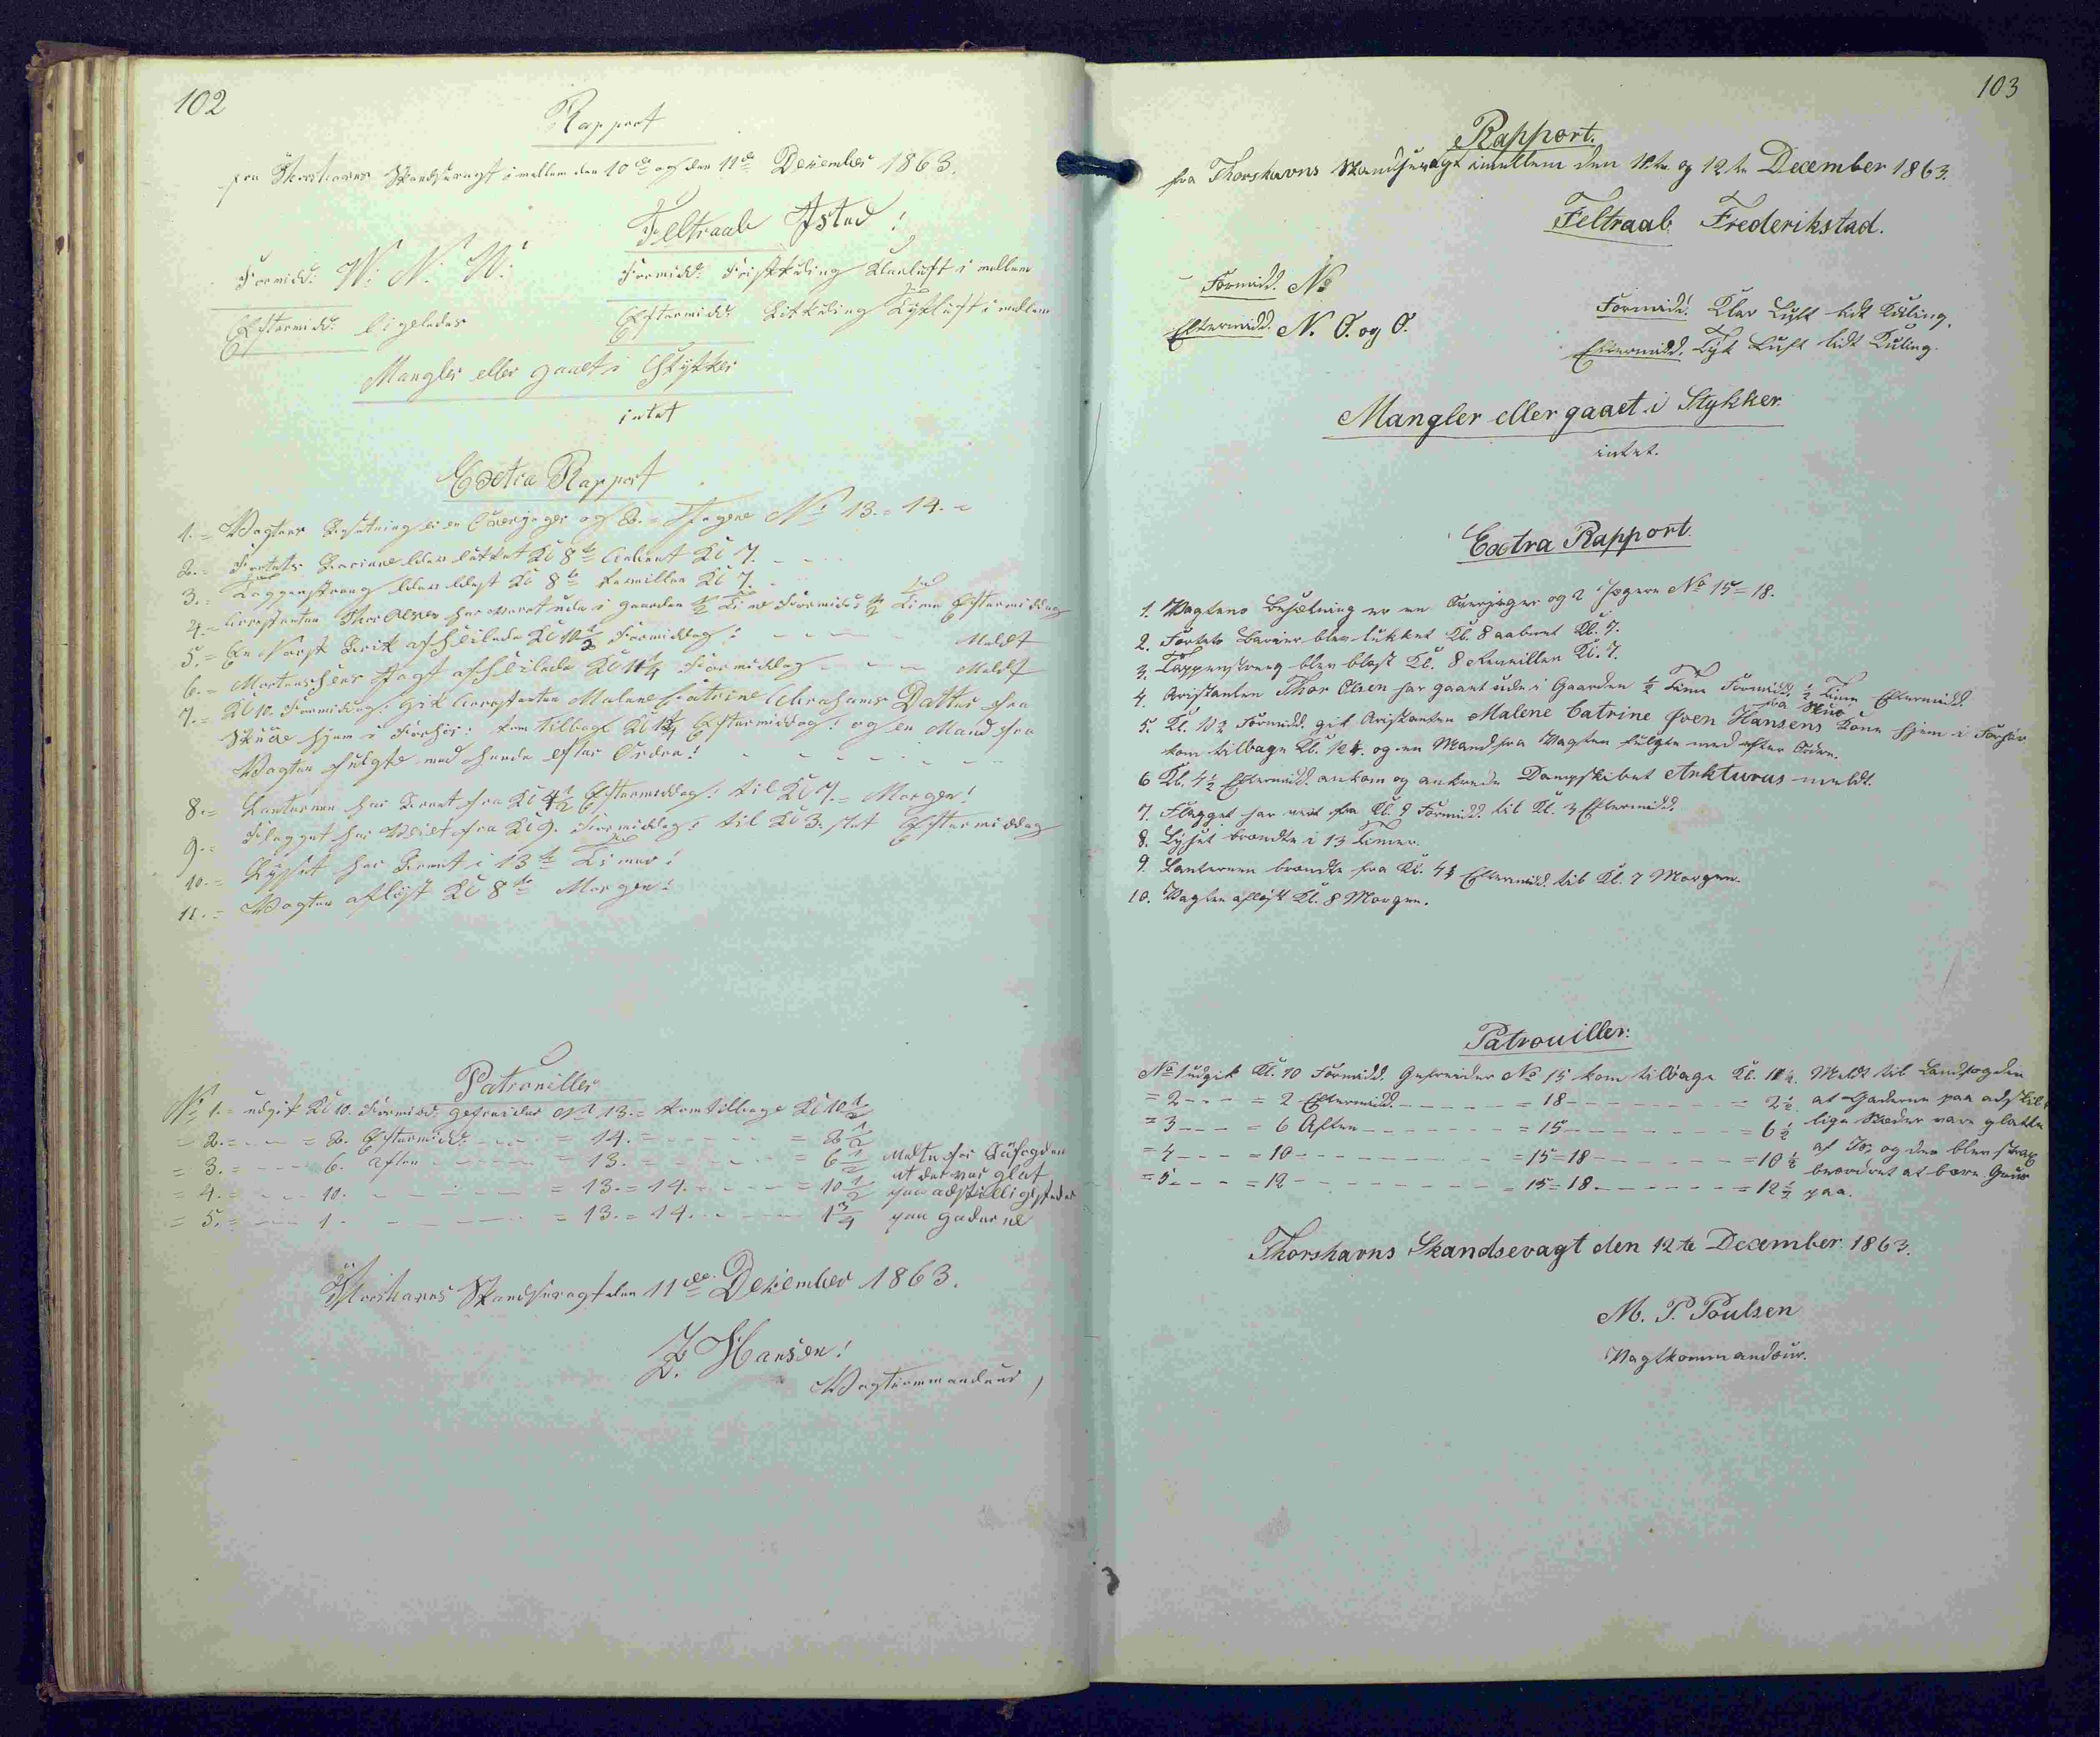 102
Rapport
fra Thorshavns Skandsevagt imellem den 10de og den 11de Desember 1863.
Feltraab Isted!
Formidd: W: N: W:
Formidd: Friskkuling Klarluft i mellem
Eftermidd: ligeledes
Eftermidd: Litkuling Tykluft i mellem
Mangler eller gaaet i Stykker
intet
Extra Rapport
1.= Vagtens Besætning er en Overjæger og 2.= Jægere No 13.= 14.=
2.= Fortets Barriere blev lukket Kl 8te Aabent Kl 7.
3.= Tappenstræng blev blæst Kl 8te Reveillen Kl 7.
4.= Arrestanten Thor Olsen har været ude i gaarden ½ Time Formidd: ½ Time Eftermiddag
5.= En Norsk Brik afseilede Kl 10½ Formiddag: Meldt
6.= Mortensens Jagt afseilede Kl 11¼ Formiddag Meldt
7.= Kl 10. Formiddag: gik Arrestanten Malene Catrine Abrahams Datter fra
Skue hjem i Forhør: kom tilbage Kl 1¼ Eftermiddag: og en Mand fra
Vagten fulgte med hende efter Ordre!
8.= Lanternen har Brent fra Kl 4½ Eftermiddag: til Kl 7.= Morgen!
9.= Flagget har Veiet fra Kl 9. Formiddag: til Kl 3. slet Eftermiddag
10.= Lyset har Brent i 13te Timer!
11.= Vagten afløst Kl 8te Morgen!
Patrouiller
No 1.= udgik Kl 10. Formidd. gefreider No 13.= kom tilbage Kl 10½
= 2.= = 2. Eftermidd. = 14.= = 2½
= 3.= 6. Aften = 13.= = 6½ Meldte for Byfogden
at det var glat
= 4.= 10. = 13.= 14. = 10½ paa adskillige steder
= 5.= 1. = 13.= 14. 1¾ paa gaderne
Thorshavns Skandsevagt den 11de Desember 1863.
Z. Hansen!
Vagtcommandeur
103
Rapport.
fra Thorshavns Skandsevagt imellem den 11te og 12te December 1863.
Feltraab. Frederikstad.
Formidd. No
Formidd. Klar Luft lidt Kuling.
Eftermidd. N. O. og O.
Eftermidd. Tyk Luft lidt Kuling.
Mangler eller gaaet i Stykker.
intet.
Extra Rapport.
1. Vagtens Besætning er en Overjæger og 2 Jægere No 15=18.
2. Fortets Barrier blev lukket Kl. 8 aabnet Kl. 7.
3. Tappenstræng blev blæst Kl. 8 Reveillen Kl. 7.
4. Aristanten Thor Olsen har gaaet ude i Gaarden ½ Time Formidd. ½ Time Eftermidd.
fra Skuø
5. Kl. 10½ Formidd. gik Aristanten Malene Catrine Hansens Kone hjem i Forhør
kom tilbage Kl. og en Mand fra Vagten fulgte med efter Ordre.
6 Kl. 4½ Eftermidd. ankom og ankrede Dampskibet Arkturus meldt.
7. Flagget har veiet fra Kl. 9 Formidd. til Kl. 3 Eftermidd.
8. Lyset brændte i 13 Timer.
9. Lanternen brændte fra Kl. 4½ Eftermidd. til Kl. 7 Morgen.
10. Vagten afløst Kl. 8 Morgen.
Patrouiller.
No 1 udgik Kl. 10 Formidd. Gefreider No 15 kom tilbage Kl. Meldt til Landfogden
= 2 = 2 Eftermidd. = 18 = 2½. at Gaderne paa adskil-
= 3 = 6 Aften = 15 = 6½ lige Steder vare glatte
= 4 = 10 = 15=18 = 10½ af Is, og der blev strax
= 5 = 12 = 15=18 = 12½ beordret at bære Gruus
paa.
Thorshavns Skandsevagt den 12te December 1863.
M. P. Poulsen
Vagtkommandeur.